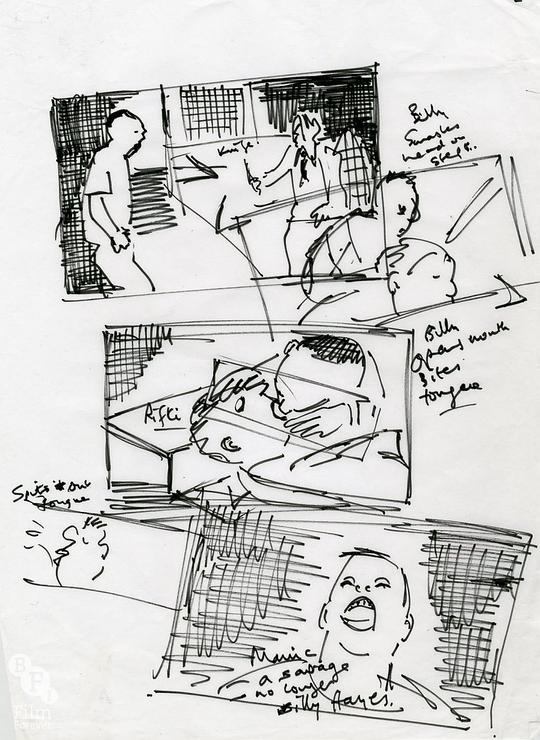 Knife!
Billy
Smashes
head on
steps.
Billy
opens mouth
Bites
tongue
Rifki
Spits out
tongue
Manic
a savage
no longer
Billy Hayes.
BFI
Film
Forever